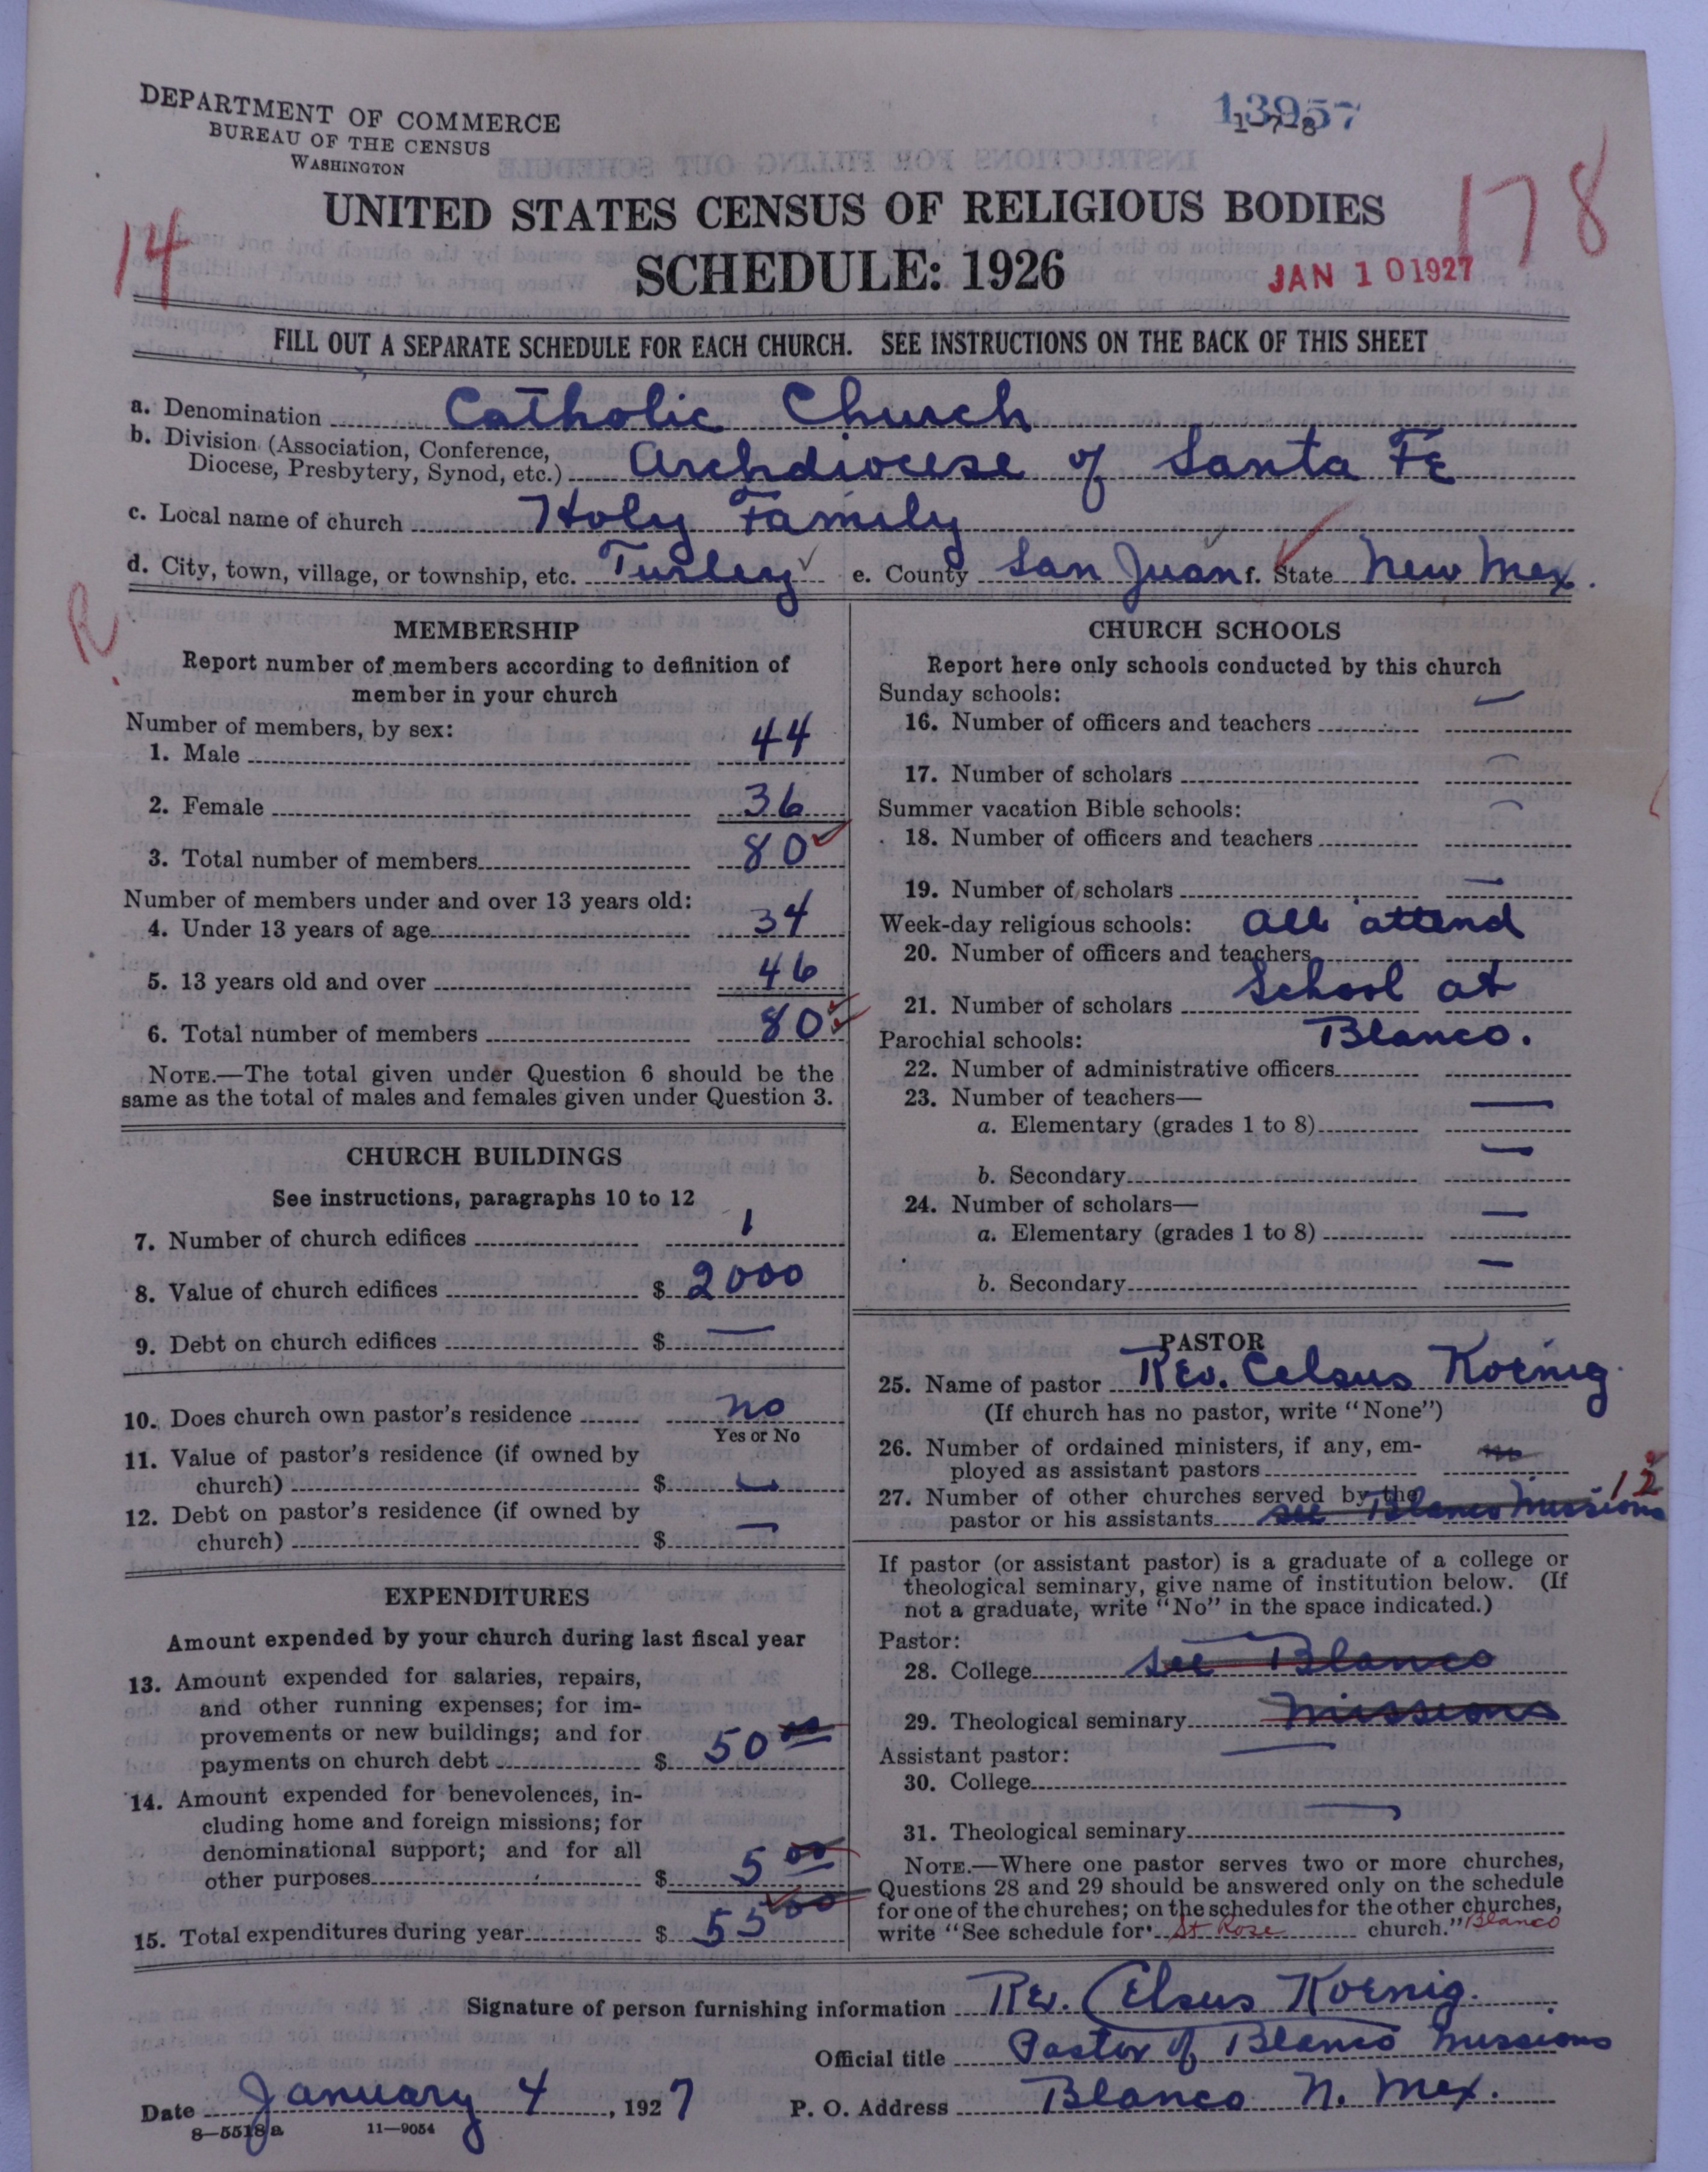 DEPARTMENT OF COMMERCE
BUREAU OF THE CENSUS
WASHINGTON
13957
1-7-8
UNITED STATES CENSUS OF RELIGIOUS BODIES
178
14
SCHEDULE: 1926
JAN 10 1927
FILL OUT A SEPARATE SCHEDULE FOR EACH CHURCH. SEE INSTRUCTIONS ON THE BACK OF THIS SHEET
a. Denomination Catholic Church
b. Division (Association, Conference,
Diocese, Presbytery, Synod, etc.) Archdiocese of Santa Fe
c. Local name of church Holy Family
d. City, town, village, or township, etc. Turley e. County San Juan f. State New Mex.
R
MEMBERSHIP
Report number of members according to definition of
member in your church
Number of members, by sex:
1. Male 44
2. Female 36
3. Total number of members 80
Number of members under and over 13 years old:
4. Under 13 years of age 34
5. 13 years old and over 46
6. Total number of members 80
NOTE.—The total given under Question 6 should be the
same as the total of males and females given under Question 3.
CHURCH BUILDINGS
See instructions, paragraphs 10 to 12
7. Number of church edifices 1
8. Value of church edifices $ 2000
9. Debt on church edifices $ —
10. Does church own pastor's residence no
Yes or No
11. Value of pastor's residence (if owned by
church) $ —
12. Debt on pastor's residence (if owned by
church) $ —
EXPENDITURES
Amount expended by your church during last fiscal year
13. Amount expended for salaries, repairs,
and other running expenses; for im-
provements or new buildings; and for
payments on church debt $ 50 00
14. Amount expended for benevolences, in-
cluding home and foreign missions; for
denominational support; and for all
other purposes $ 5 00
15. Total expenditures during year $ 55 00
CHURCH SCHOOLS
Report here only schools conducted by this church
Sunday schools: —
16. Number of officers and teachers
17. Number of scholars —
Summer vacation Bible schools: —
18. Number of officers and teachers
19. Number of scholars —
Week-day religious schools: All attend
20. Number of officers and teachers
21. Number of scholars School at
Parochial schools: Blanco.
22. Number of administrative officers
23. Number of teachers— —
a. Elementary (grades 1 to 8)
b. Secondary —
24. Number of scholars— —
a. Elementary (grades 1 to 8)
b. Secondary —
PASTOR
25. Name of pastor Rev. Celsus Koenig
(If church has no pastor, write "None")
26. Number of ordained ministers, if any, em-
ployed as assistant pastors no
27. Number of other churches served by the 12
pastor or his assistants see Blanco Missions
If pastor (or assistant pastor) is a graduate of a college or
theological seminary, give name of institution below. (If
not a graduate, write "No" in the space indicated.)
Pastor:
28. College see Blanco
29. Theological seminary missions
Assistant pastor: —
30. College
31. Theological seminary —
NOTE.—Where one pastor serves two or more churches,
Questions 28 and 29 should be answered only on the schedule
for one of the churches; on the schedules for the other churches,
write "See schedule for St Rose church." Blanco
Signature of person furnishing information Rev. Celsus Koenig.
Official title Pastor of Blanco Missions
Date January 4, 1927 P. O. Address Blanco N. Mex.
8—5518a 11—9054